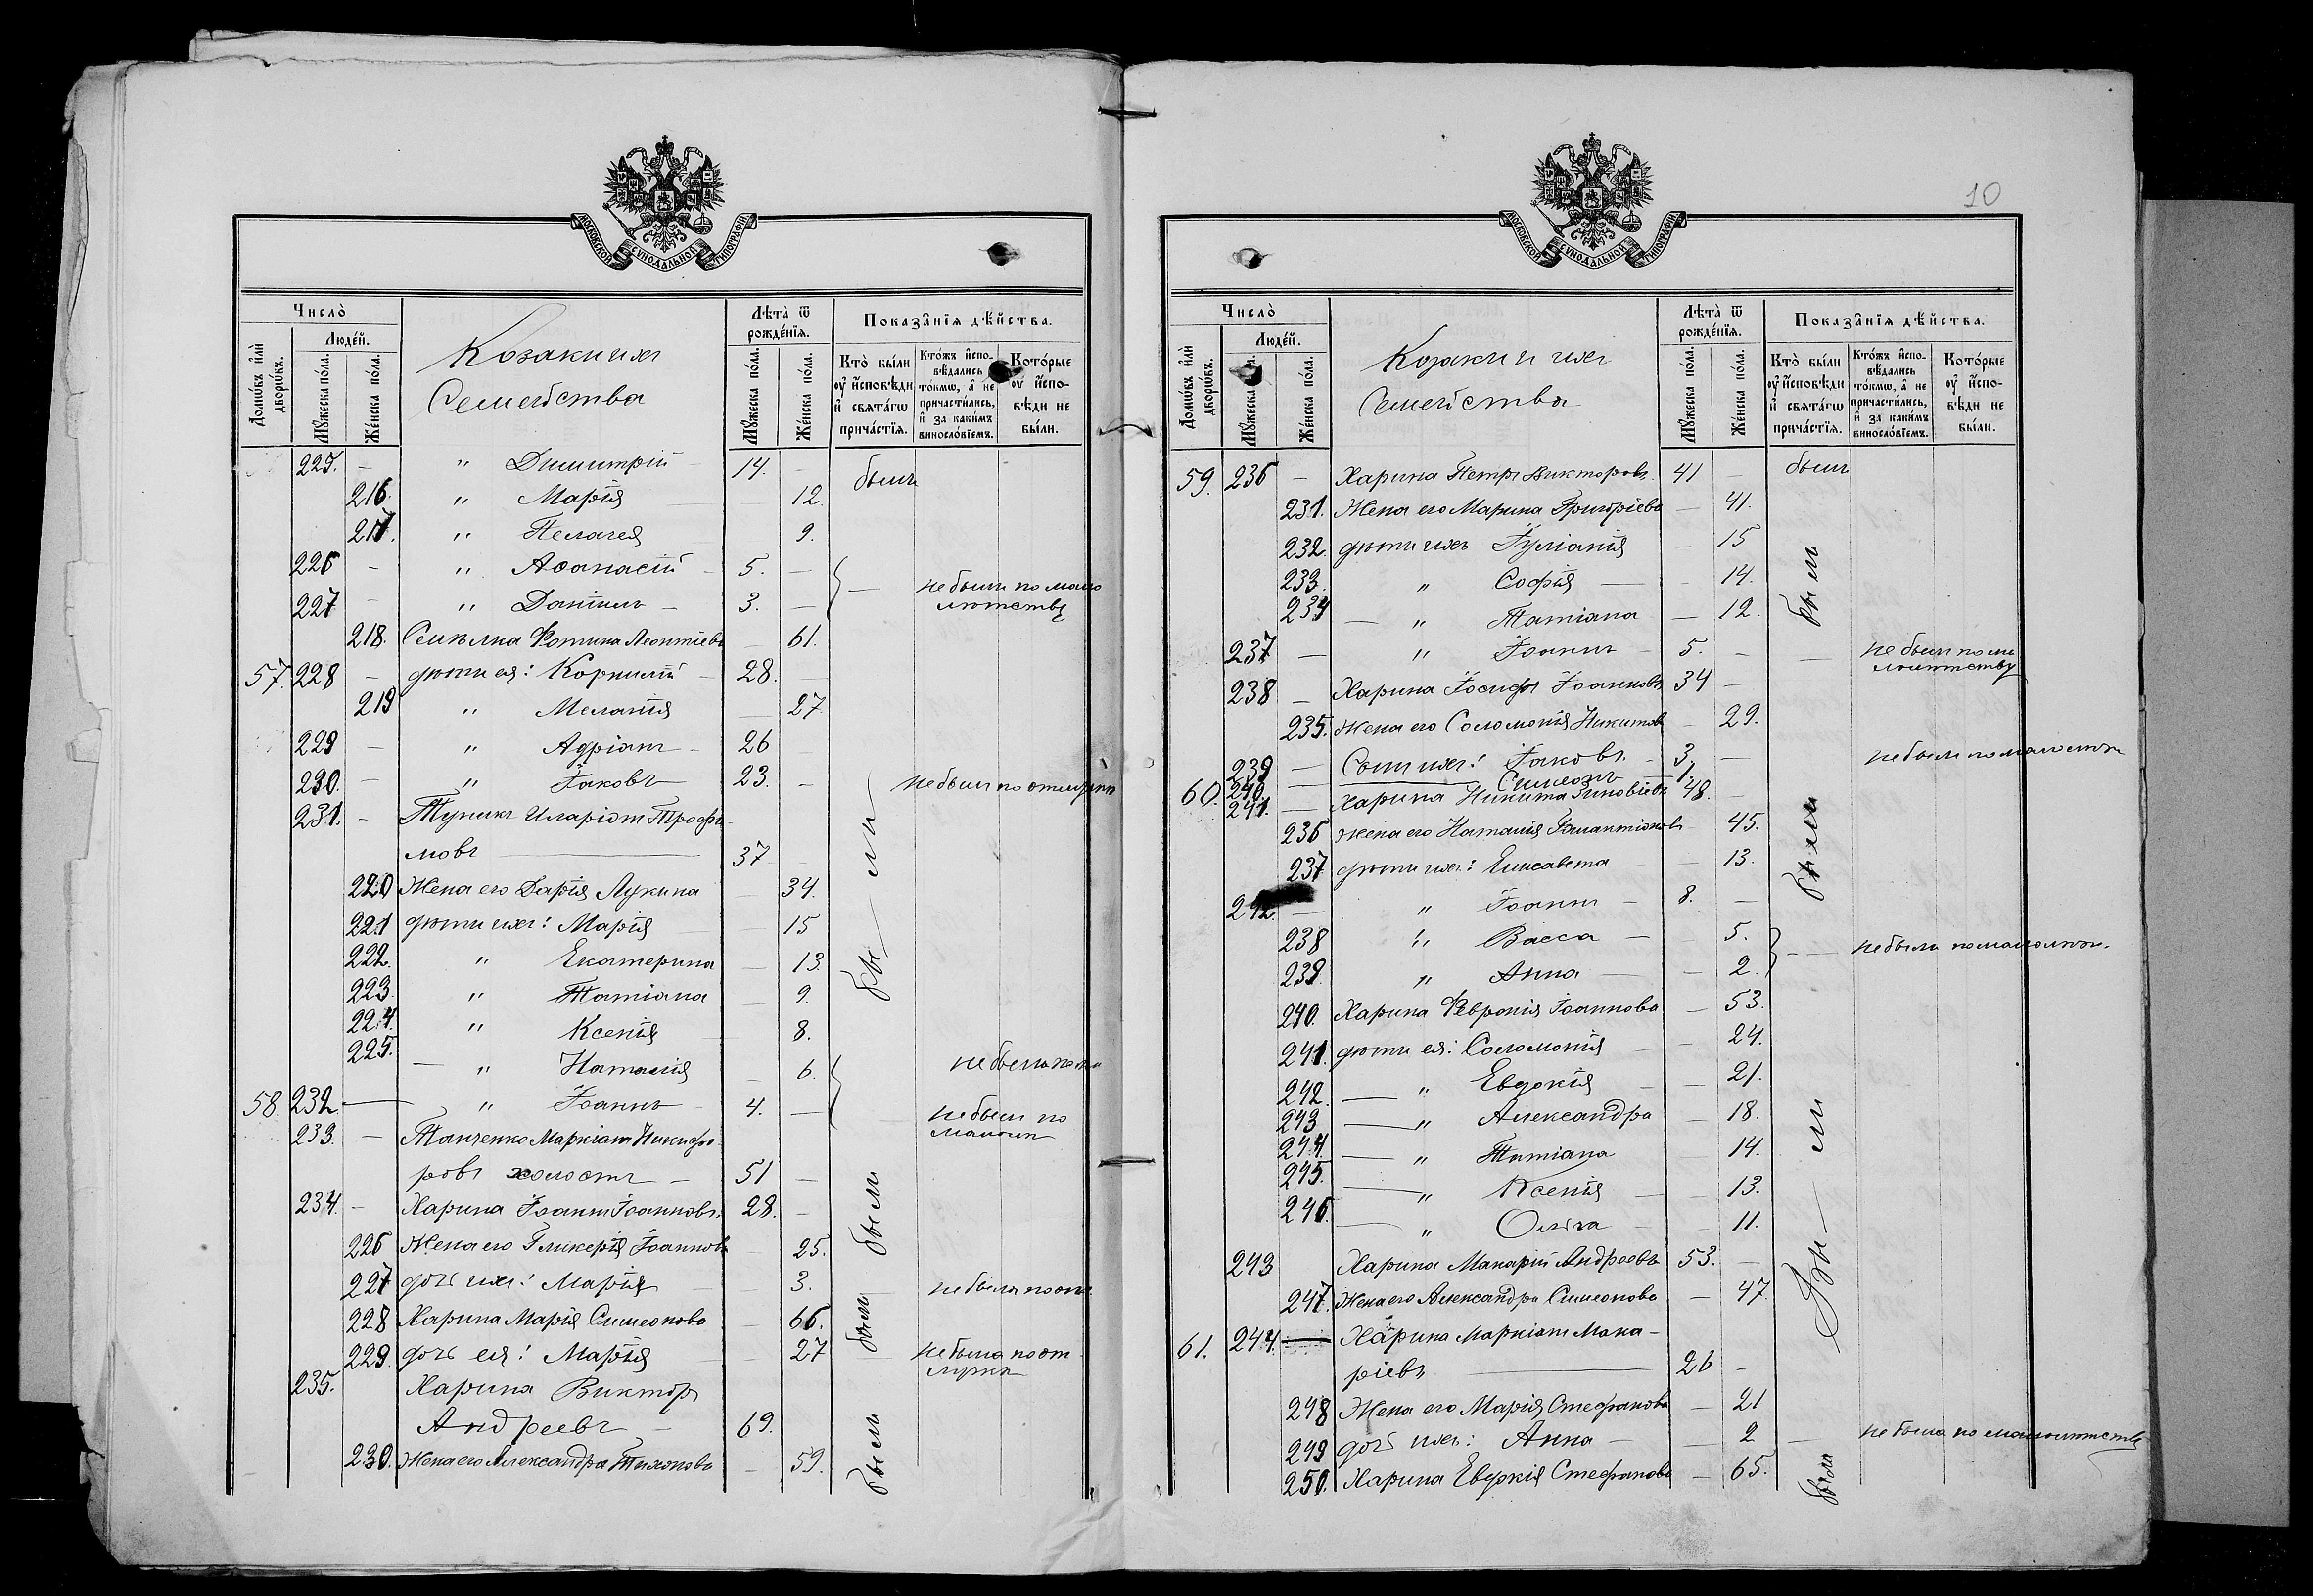 МОСКОВСКОЙ СУНОДАЛЬНОЙ ТИПОГРАФІИ
Число̀
Домѡ́въ и҆лѝ дворѡ́въ.
Люде́й.
Мꙋ́жеска по́ла.
Же́нска по́ла.
Козаки ихъ
Семейства
Лѣ́та ѿ рожде́нїѧ.
Мꙋ́жеска по́ла.
Же́нска по́ла.
Показа̑нїѧ дѣ́йства.
Кто̀ бы́ли оу҆ и҆сповѣ́ди и҆ свѧта́гѡ прича́стїѧ.
Кто́жъ и҆спо-вѣ́дались то́кмѡ, а҆ не причасти́лись, и҆ за каки́мъ винословїемъ.
Кото́рые оу҆ и҆спо-вѣ́ди не бы́ли.
225. — " Димитрій 14. — былъ
216. " Марія — 12.
217. " Пелагея 9.
226 — " Аѳанасій 5. —
227 — " Даніилъ — 3. — не были по мало лѣтству
218. Фотина Леонтіев — 61.
57. 228 — дѣти ея: Корнилій 28. —
219 " Меланія — 27
229 — " Адріанъ 26
230. — " Іаковъ 23. — не были по отлучкѣ
231. — Иларіонъ Трофи-
мовъ — 37 —
220 Жена его Дарія Лукина — 34.
221 дѣти ихъ: Марія — 15
222. " Екатерина — 13.
223. " Татіана — 9.
224. " Ксенія 8.
225. — " Наталія — 6.
58. 232. — " Іоаннъ 4. — не были по малолѣт
бы — ли
233. — Танченко Маркіанъ Никифо-
ровъ холостъ — 51 —
234. — Харина Іоаннъ Іоанновъ 28. —
226 Жена его Гликерія Іоаннов 25.
были
227 дочь ихъ: Марія 3.
228 Харина Марія Симеонова 66.
была
229. дочь ея: Марія 27 не была по от-
лучкѣ
235. Харина Викторъ
Андреевъ — 69.
230. Жена его Александра Тихонова — 59.
были
10
МОСКОВСКОЙ СУНОДАЛЬНОЙ ТИПОГРАФІИ
Число̀
Домѡ́въ и҆лѝ дворѡ́въ.
Люде́й.
Мꙋ́жеска по́ла.
Же́нска по́ла.
Козаки и ихъ
Семейства
Лѣ́та ѿ рожде́нїѧ.
Мꙋ́жеска по́ла.
Же́нска по́ла.
Показа̑нїѧ дѣ́йства.
Кто̀ бы́ли оу҆ и҆сповѣ́ди и҆ свѧта́гѡ прича́стїѧ.
Кто́жъ и҆спо-вѣ́дались то́кмѡ, а҆ не причасти́лись, и҆ за каки́мъ винословїемъ.
Кото́рые оу҆ и҆спо-вѣ́ди не бы́ли.
59. 236 — Харина Петръ Викторовъ. 41 — былъ
231. Жена его Марина Григоріева — 41.
232. дѣти ихъ Іуліанія — 15
233. " Софія — 14.
234 — " Татіана — 12.
были
237 — " Іоаннъ — 5. —
238 — Харина Іосифъ Іоанновъ 34 —
235. Жена его Соломонія Никитов — 29.
239 — Сыны ихъ: Іаковъ. 3. —
240. — Симеонъ 1.
60. 241. — Харина Никита Зиновіевъ 48. —
236 жена его Наталія — 45.
237 дѣти ихъ: Елисавета — 13.
были
242. — " Іоаннъ — 8. —
238 " Васса — 5.
239. " Анна — 2. не были по малолѣт.
240. Харина Февронія Іоаннова — 53.
241. дѣти ея: Соломонія — 24.
242. — " Евдокія — 21.
243 — " Александра — 18.
244. — " Татіана 14.
245. — " Ксенія — 13.
246. — " Ольга 11.
бы — ли
243 Харина Макарій Андреевъ 53. —
247. Жена его Александра Симеонова — 47.
61. 244. — Харина Маркіанъ Мака-
ріевъ — 26 —
248 Жена его Марія Стефанова — 21
249 дочь ихъ: Анна — 2 — не была по малолѣтству
250. Харина Евдокія Стефанова — 65.
была